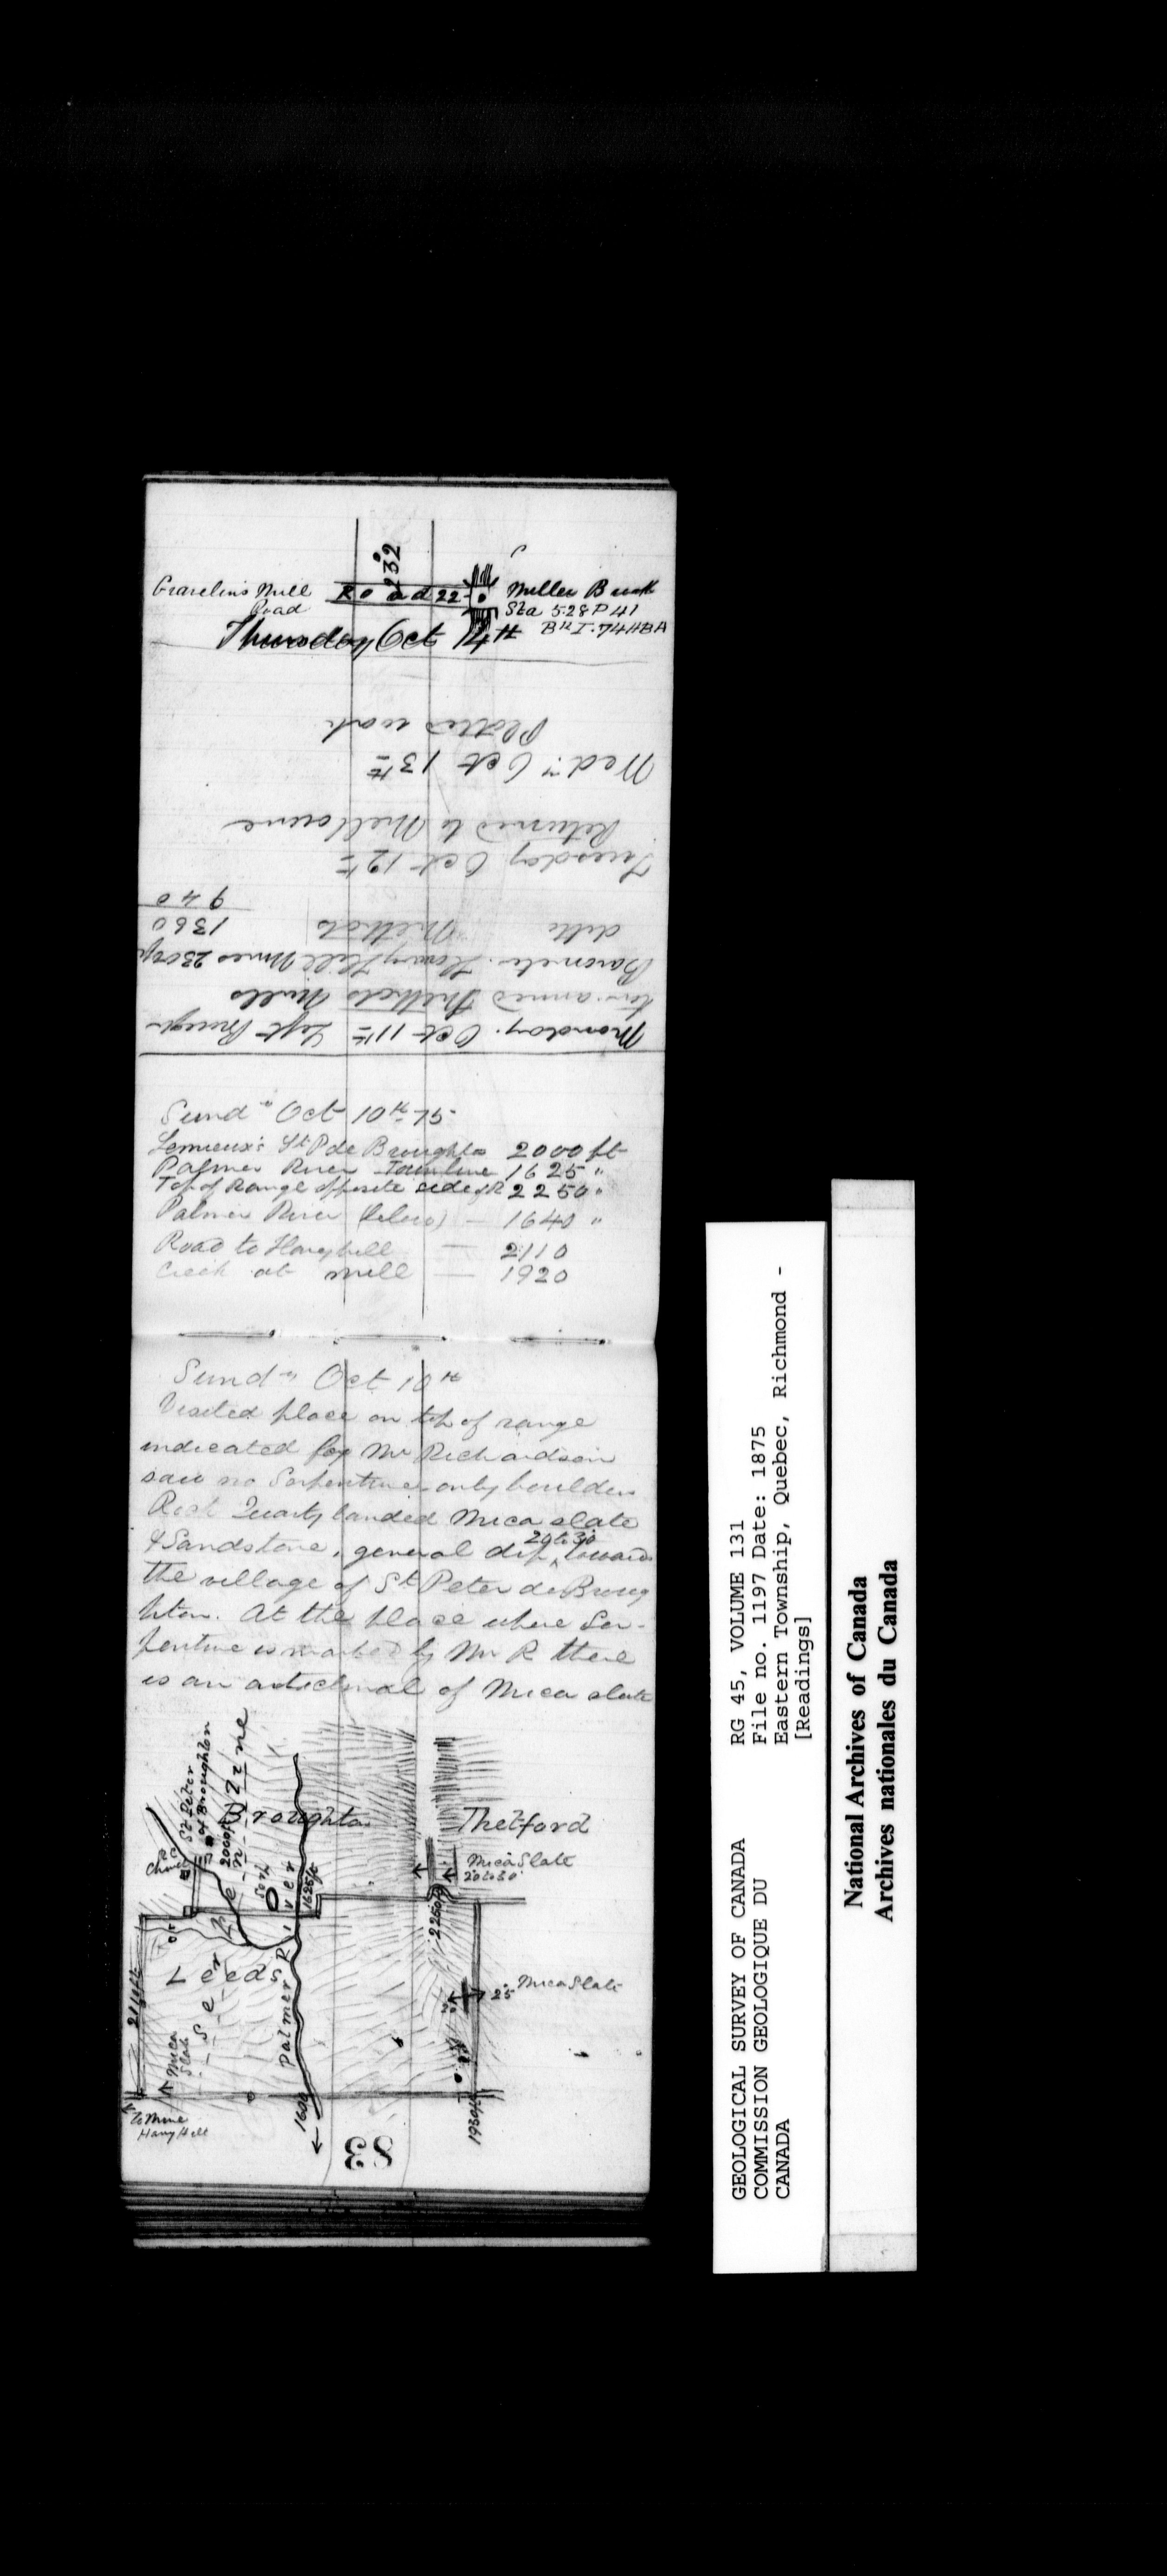 232
Gravelin's Mill
Road
Road 22
Miller Brook
Sta 528 P 41
Thursday Oct 14th
Plotted work
Wed.y Oct 13th
Returned to Melbourne
Tuesday Oct 12th
940
ditto 1360
Baromete. Harvey Hill Mines 2300
ton arrived Mills
Monday. Oct 11th Left Brough-
Sund.y Oct 10th 75
Lemieux's St P de Broughton 2000 ft
Palmer River Townline 1625 "
Top of Range opposite side of R 2250 "
Palmer River (below) — 1640 "
Road to Harvey hill — 2110
Creek at mill — 1920
Sund.y Oct 10th
Visited place on top of range
indicated by Mr Richardson
saw no Serpentine only boulders
Rock Quartz banded Mica slate
& Sandstone, general dip 20 to 30 towards
the village of St Peter de Broug
hton. At the place where Ser-
pentine is marked by Mr R there
is an anticlinal of Mica slate
St Peter
of Broughton
2000 ft
Church
Serpentine
Broughton
Thetford
Serp
Mica Slate
20 to 30
1625 ft
2250 ft
Leeds
Palmer River
25 Mica Slate
Mica
Slate
1600
1930 ft
To Mine
Harvey Hill
83
GEOLOGICAL SURVEY OF CANADA
COMMISSION GEOLOGIQUE DU
CANADA
RG 45, VOLUME 131
File no. 1197 Date: 1875
Eastern Township, Quebec, Richmond -
[Readings]
National Archives of Canada
Archives nationales du Canada